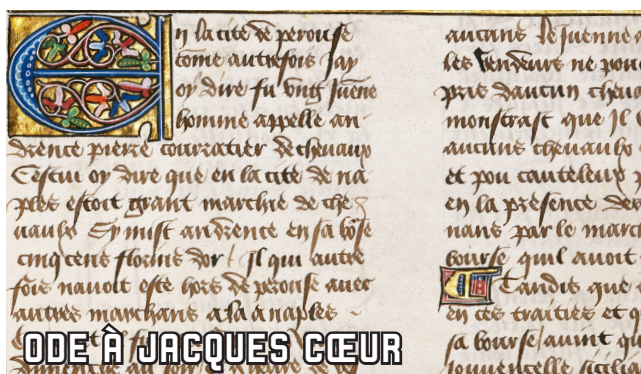 En la cite de perouse
come autrefois Jay
oy dire fu vng Juene
homme appelle an-
drence pierre courratier de chevaux
Cestui oy dire que en la cite de na
ples estoit grant marchie de che
vaulx Sy mist andrence en sa borse
cinq cens florins dor / Jl qui autre
fois navoit este hors de perouse avec
autres marchans ala a naples
aucuns le Juenne a
les vendeurs ne pou
pris daucun cheva
monstrast que Jl
aucuns chevaulx
et pou cauteleux
en la presence des
nans par le march
bourse quil avoit
Tandis que
en ces traities et q
sa bourse / avint qu
jouvencelle sicili
ODE À JACQUES CŒUR